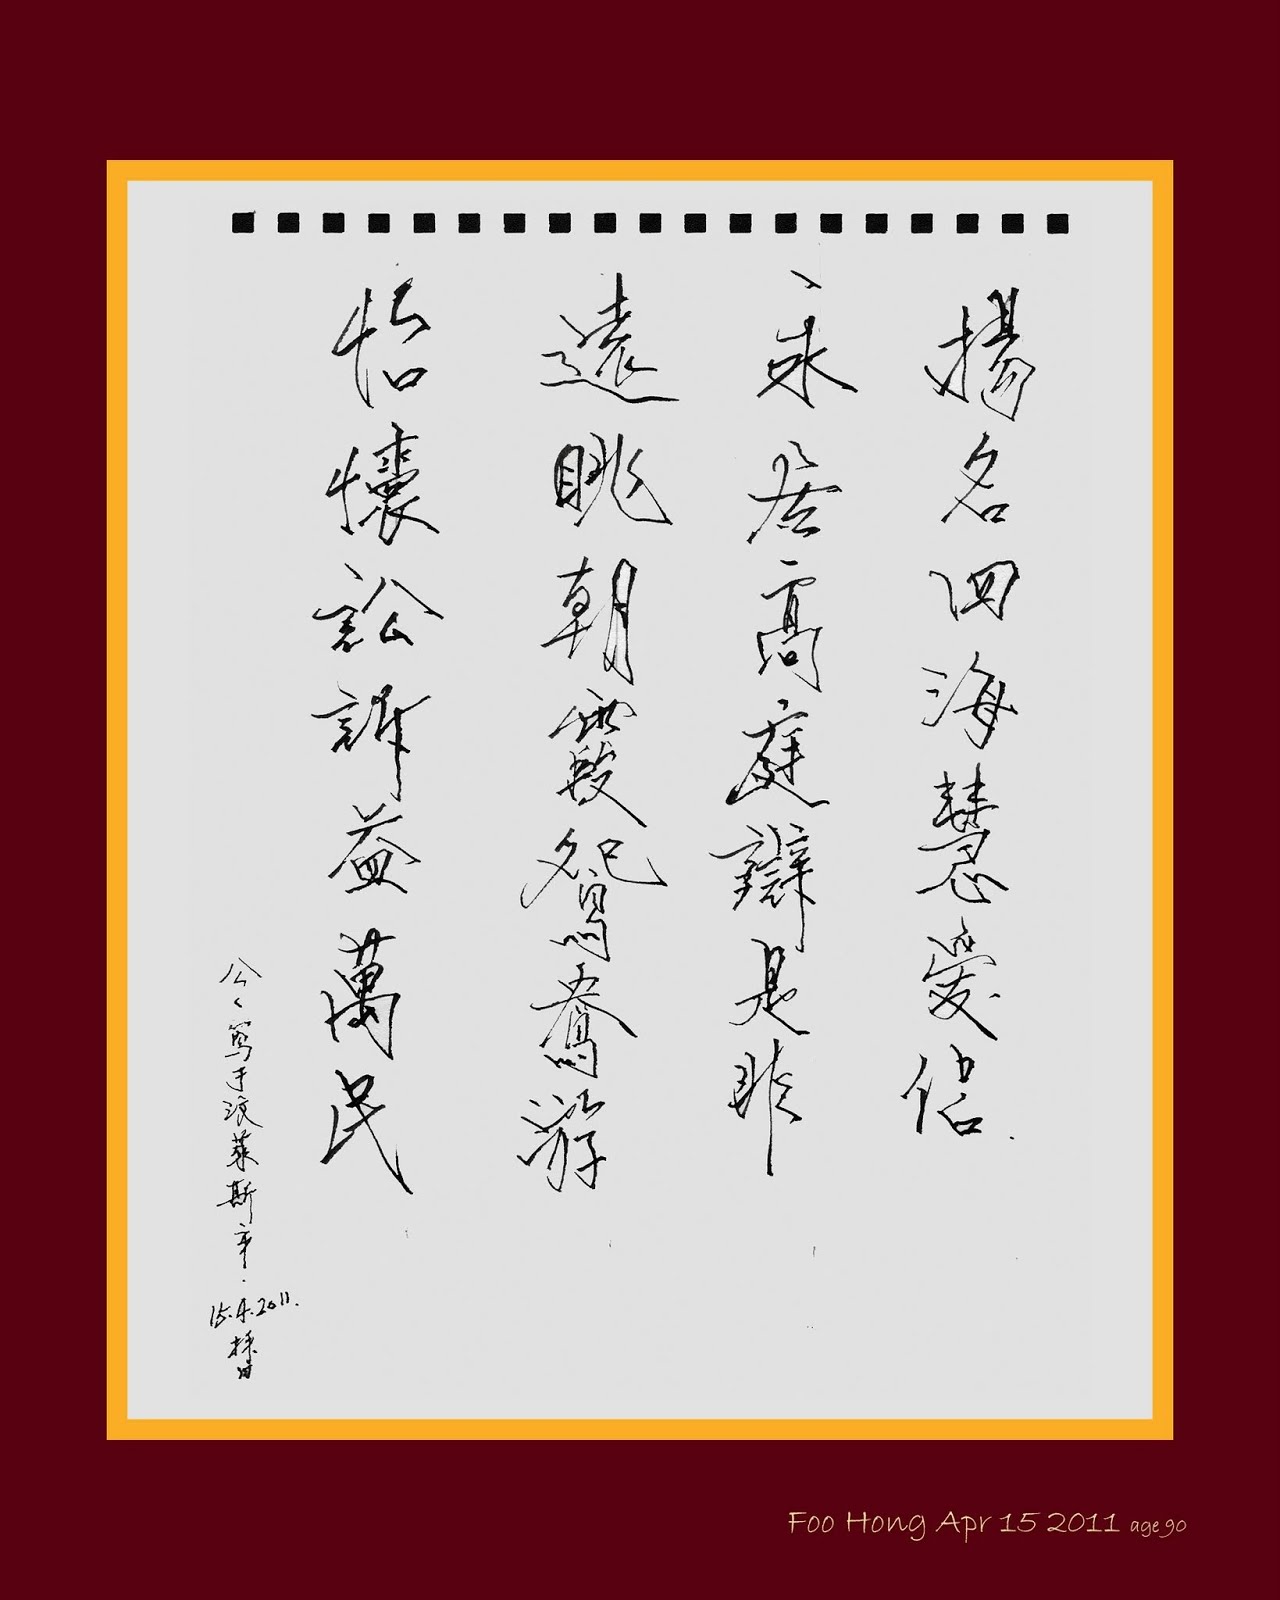 揚名四海慧愛侶
永居高庭辯是非
遠眺朝霞鴛鴦游
怡懷訟訴益萬民
公公寫于波萊斯亭.
15.4.2011.
Foo Hong Apr 15 2011 age 90